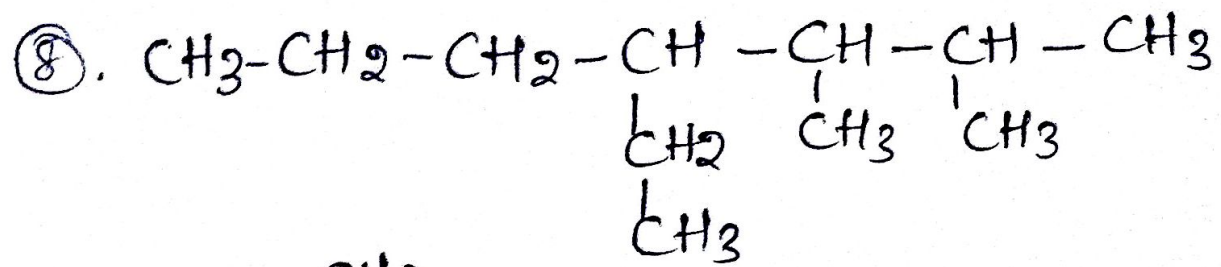 ⑧. CH3-CH2-CH2-CH-CH-CH-CH3
CH2 CH3 CH3
CH3